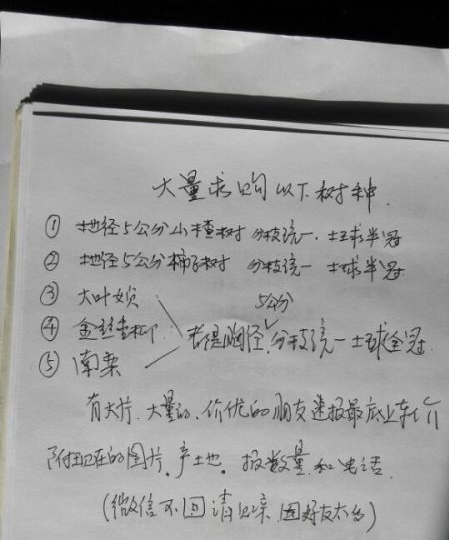 大量求购以下树种.
① 地径5公分山楂树 分枝统一.土球半冠
② 地径5公分柿子树 分枝统一 土球半冠
③ 大叶女贞
5公分
④ 金丝垂柳: 老桩胸径,分枝统一土球全冠.
⑤ 南栾
有大片.大量的.价优的朋友速报最底上车价
附现在的图片.产土地.报数量和电话.
(微信不回请见谅.因好友太多)